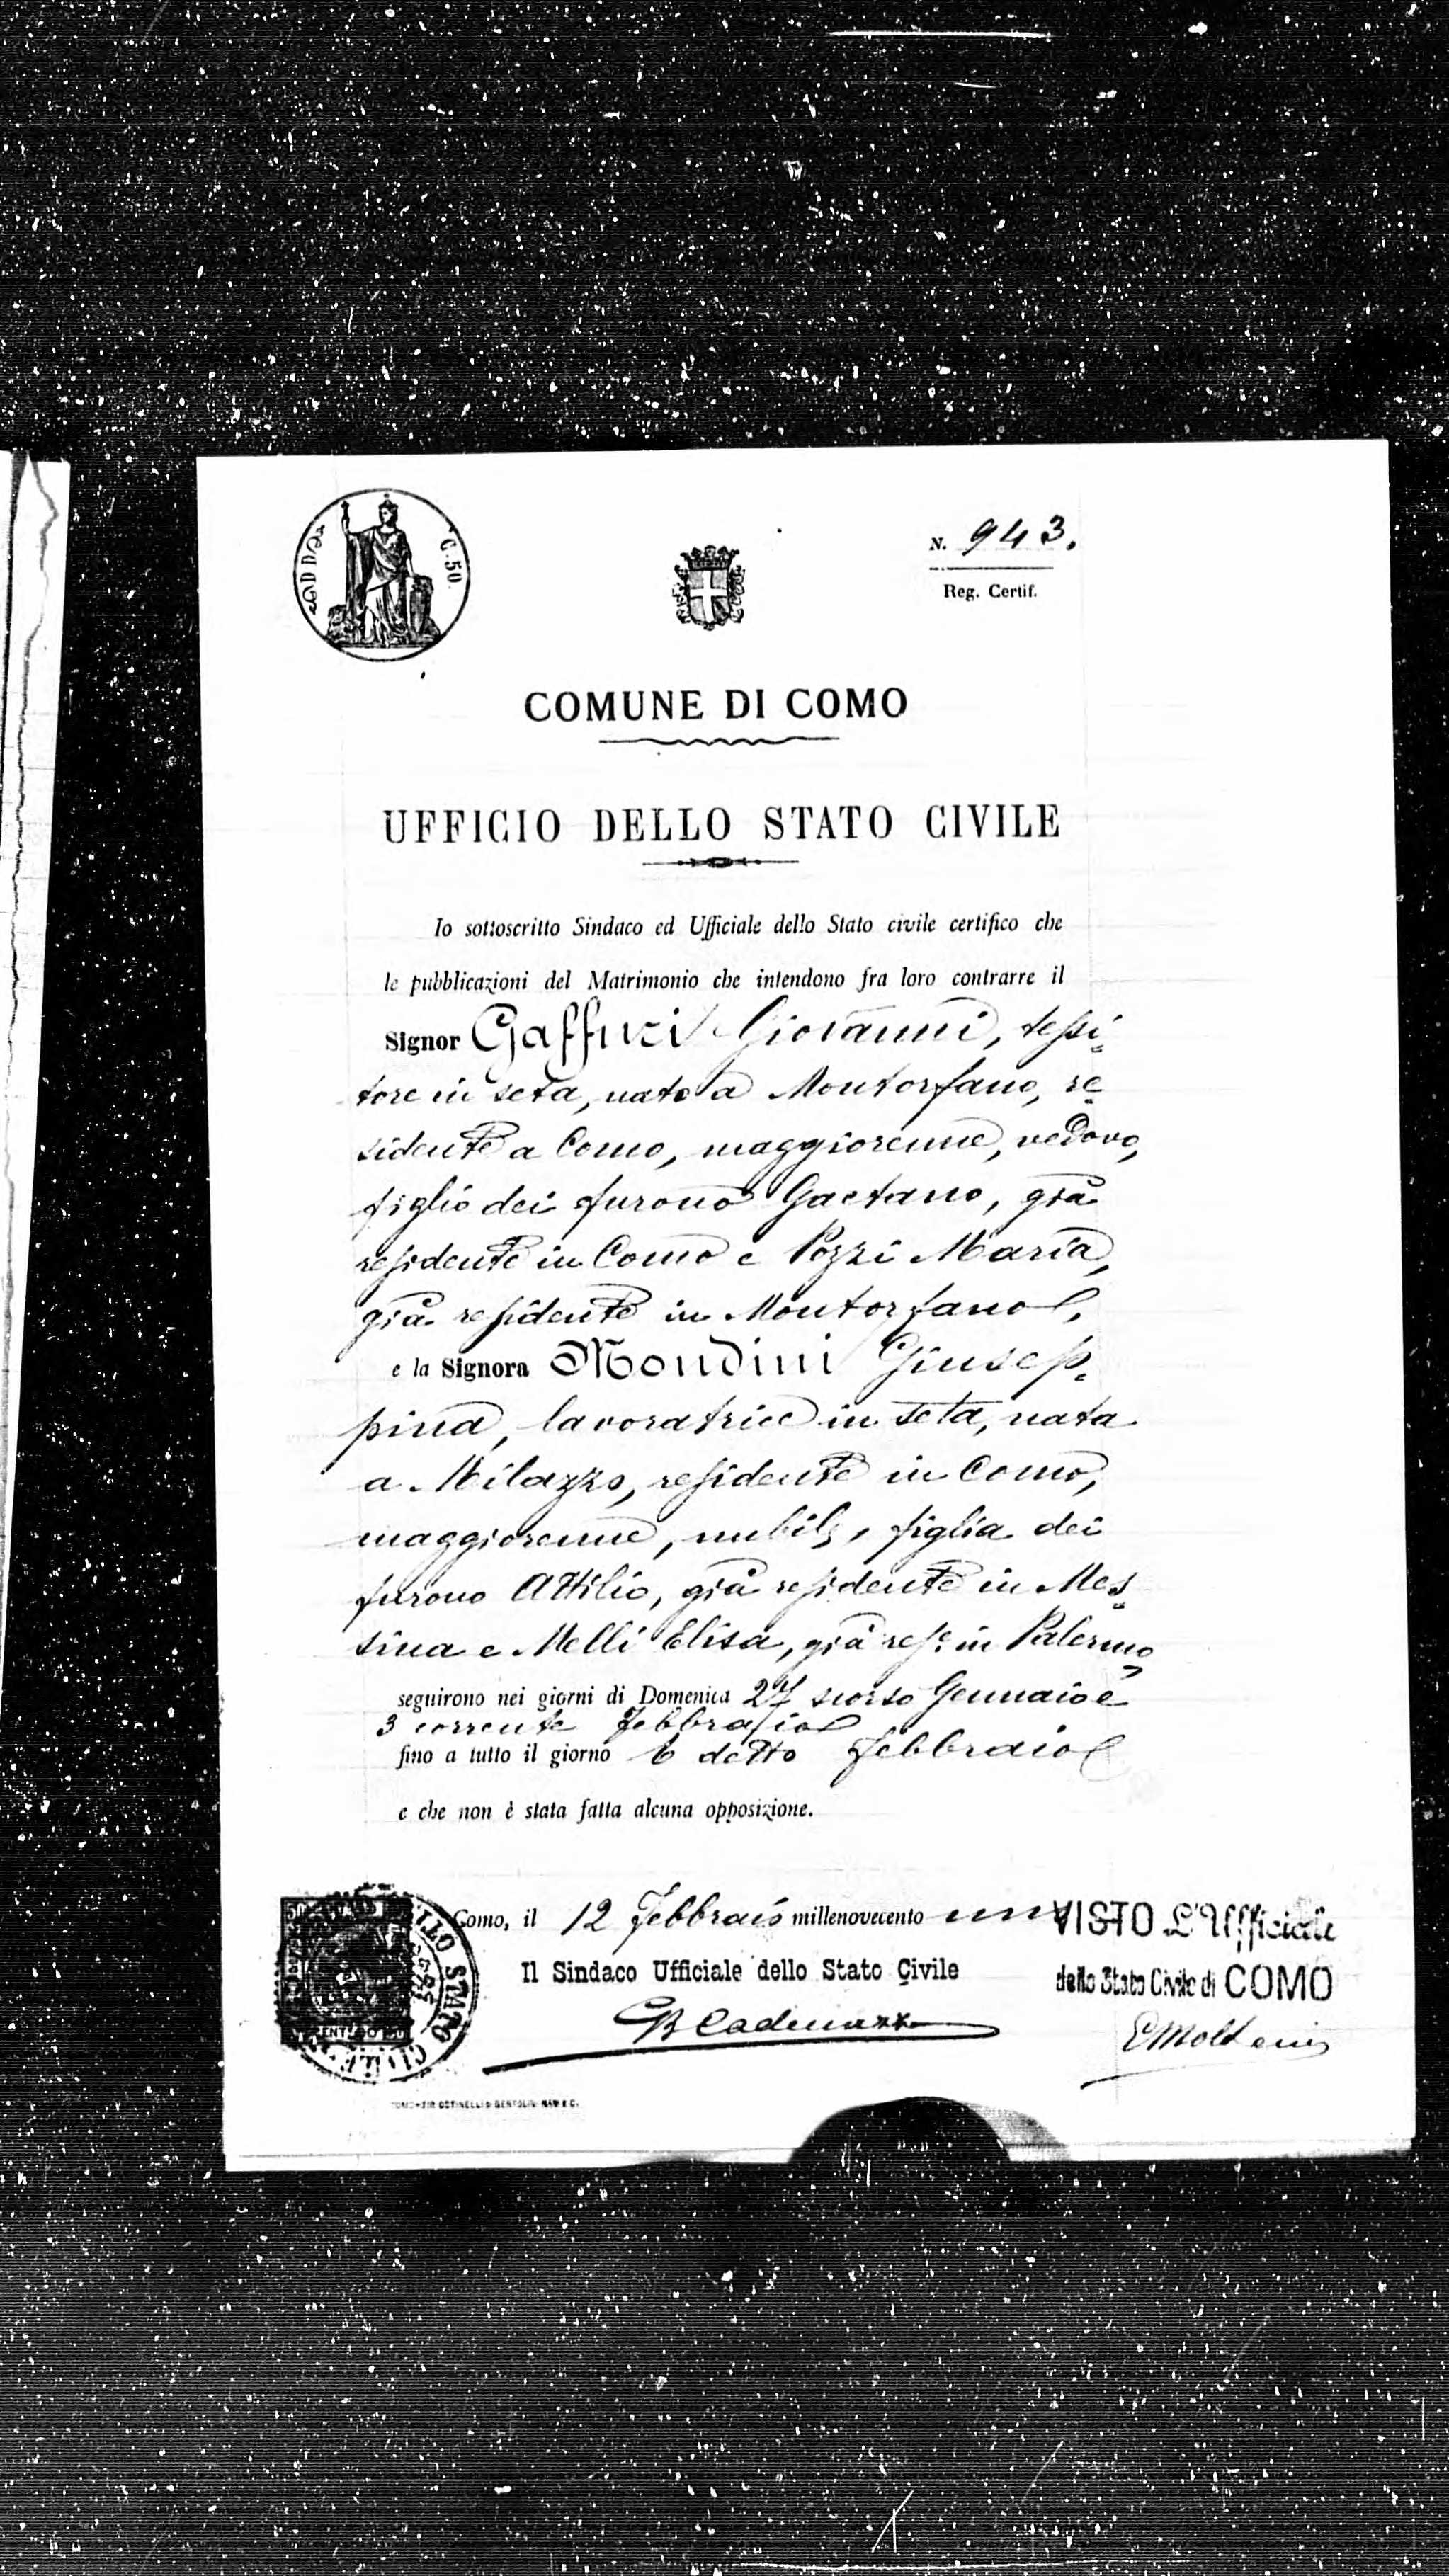 C. 50.
N. 943.
Reg. Certif.
COMUNE DI COMO
UFFICIO DELLO STATO CIVILE
Io sottoscritto Sindaco ed Ufficiale dello Stato civile certifico che
le pubblicazioni del Matrimonio che intendono fra loro contrarre il
Signor Gaffuri Giovanni, tessi-
tore in seta, nato a Montorfano, re-
sidente a Como, maggiorenne, vedovo,
figlio dei furono Gaetano, già
residente in Como e Pozzi Maria,
già residente in Montorfano,
e la Signora Mondini Giusep-
pina, lavoratrice in seta, nata
a Milazzo, residente in Como,
maggiorenne, nubile, figlia dei
furono Attilio, già residente in Mes-
sina e Melli Elisa, già res.e in Palermo,
seguirono nei giorni di Domenica 27 scorso Gennaio e
3 corrente Febbraio
fino a tutto il giorno 6 detto Febbraio
e che non è stata fatta alcuna opposizione.
Como, il 12 Febbraio millenovecento uno
VISTO L'Ufficiale
Il Sindaco Ufficiale dello Stato Civile
dello Stato Civile di COMO
LLO STATO CIVILE